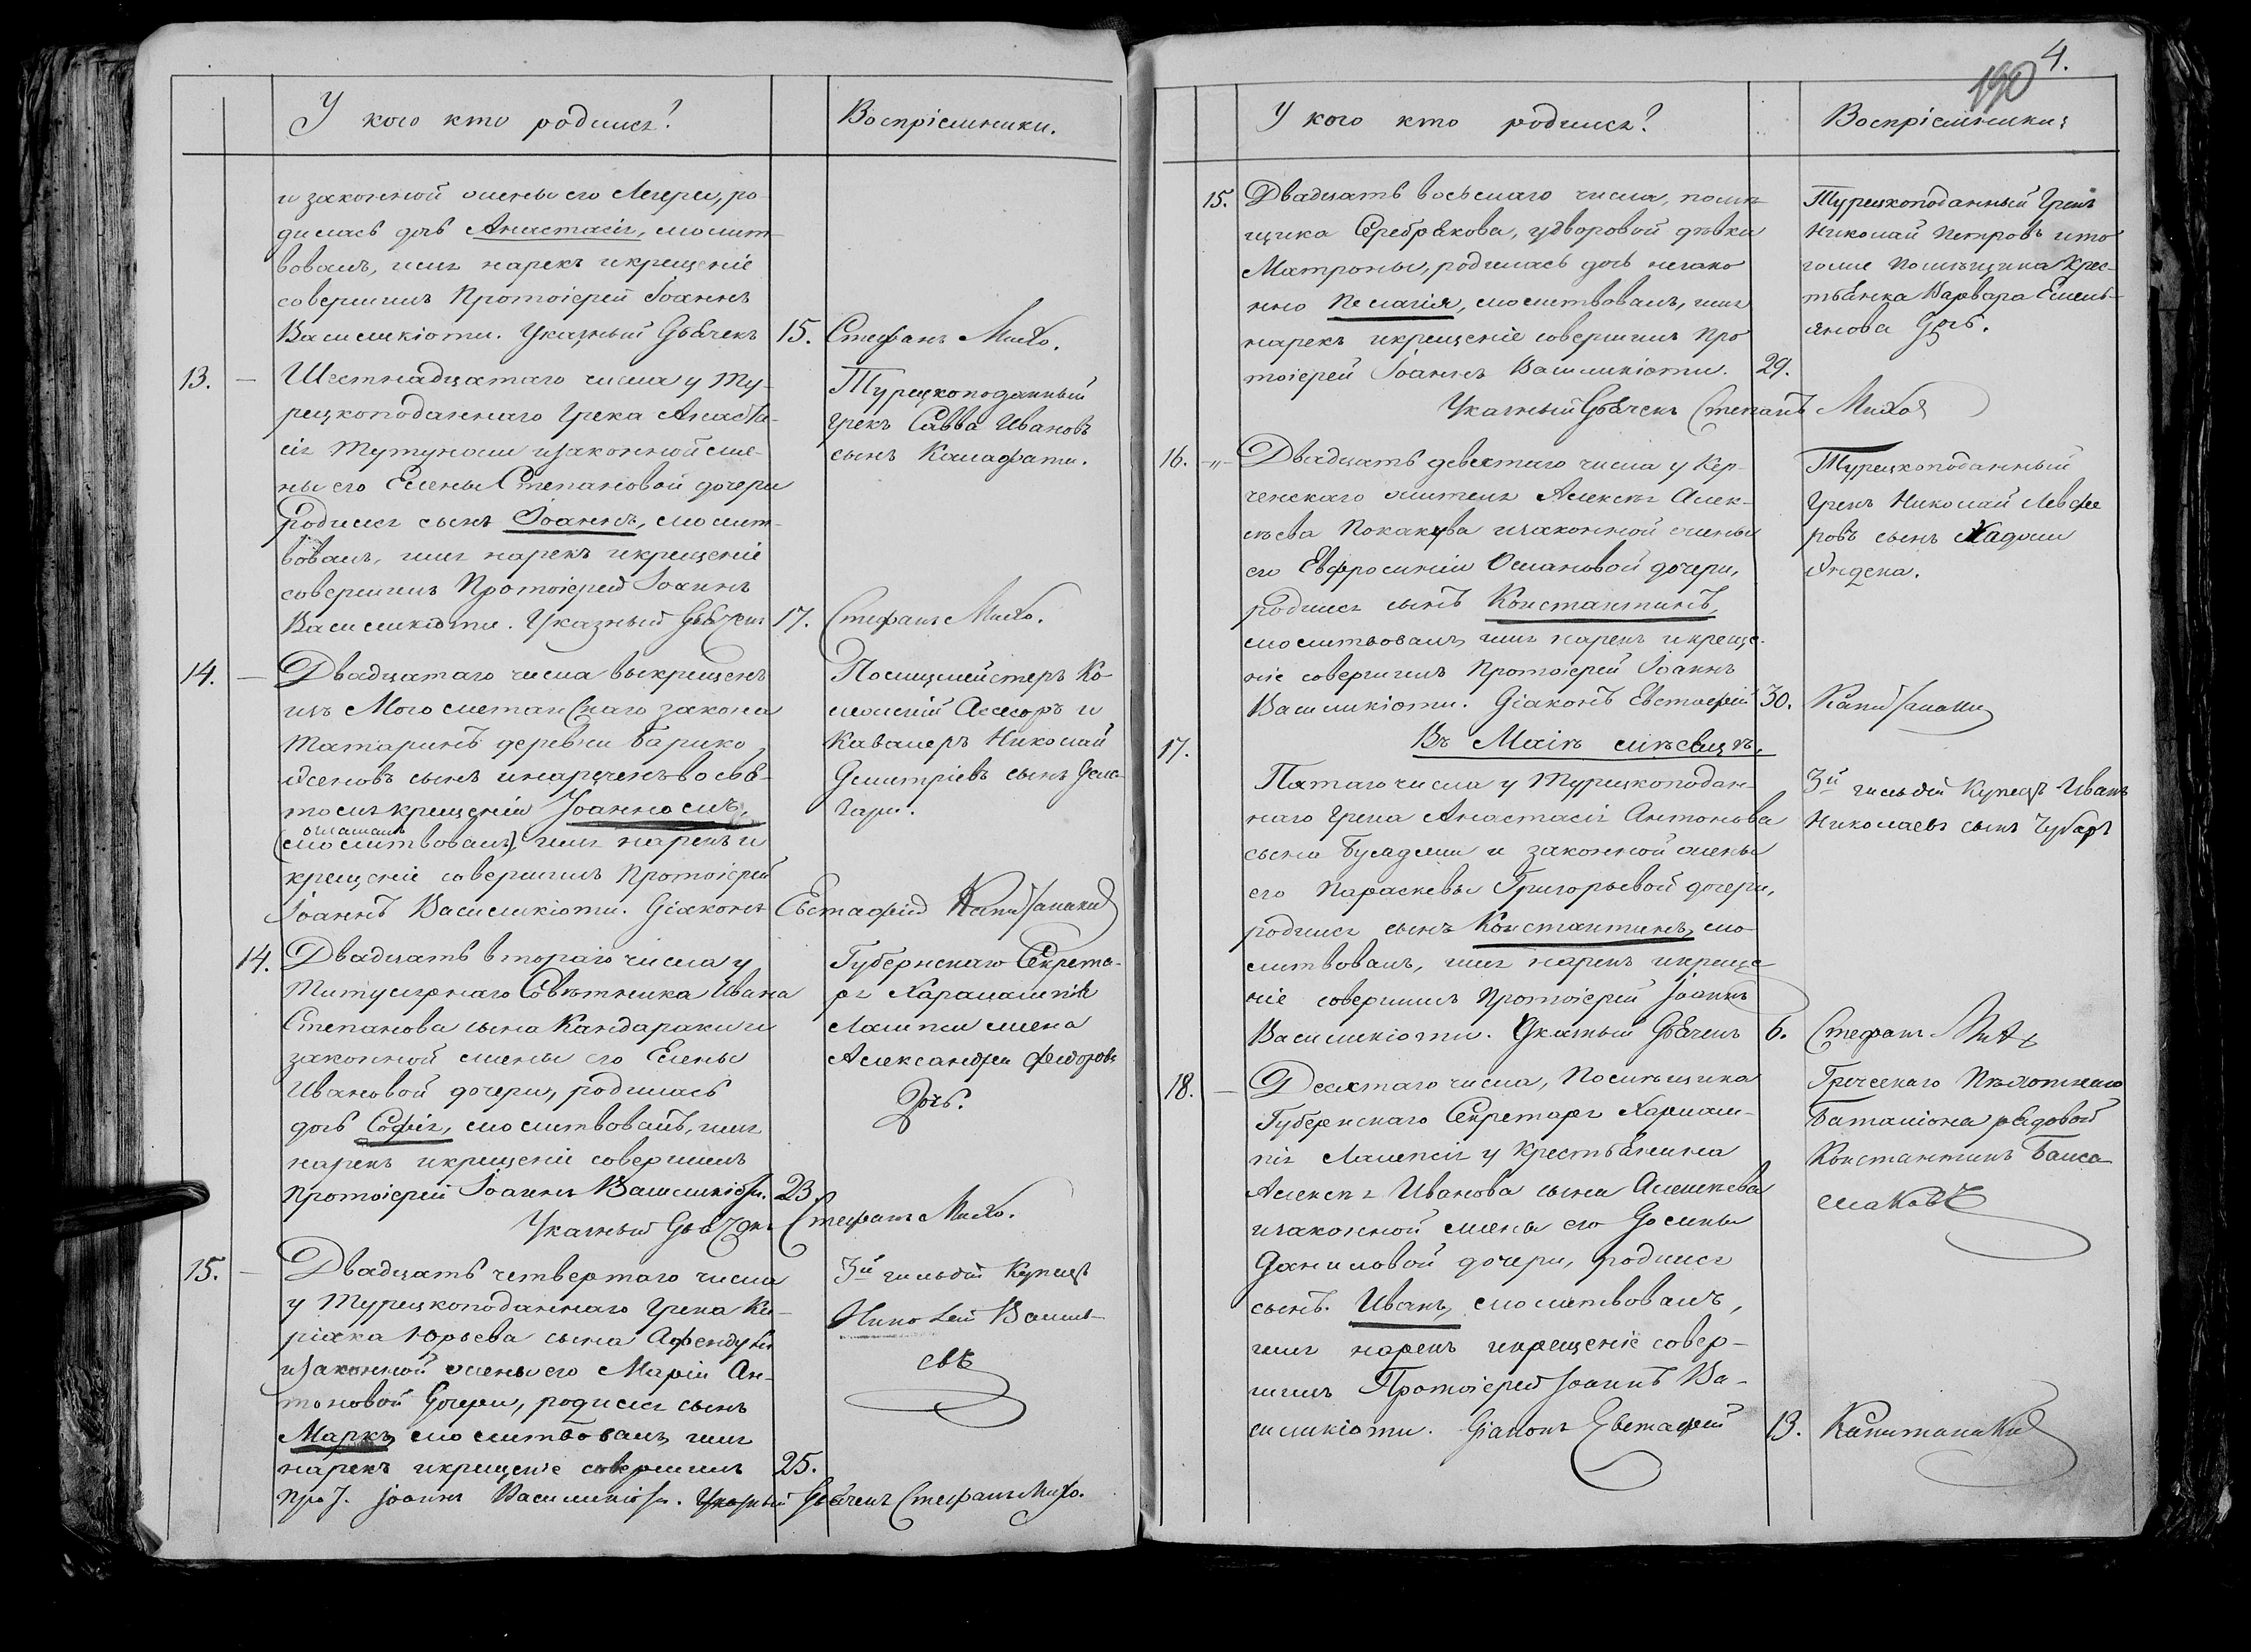 У кого кто родился?
Воспріемники.
и законной жены его Мегери, ро-
дилась дочь Анастасія, молит-
вовалъ, имя нарекъ и крещеніе
совершилъ Протоіерей Іоаннъ
Василикіоти. Указный Дьячекъ 15. Стефанъ Михо.
13. — Шестнадцатаго числа у Ту-
рецкоподаннаго Грека Анаста-
сія и законной же-
ны его Елены Степановой дочери
родился сынъ Іоаннъ, молит-
вовалъ, имя нарекъ и крещеніе
совершилъ Протоіерей Іоаннъ
Василикіоти. Указный Дьячекъ 17. Стефанъ Михо.
Турецкоподанный
Грекъ Савва Ивановъ
сынъ Калафати.
14. — Двадцатаго числа выкрещенъ
изъ Магометанскаго закона
Татаринъ деревни
сынъ и нареченъ во свя-
томъ крещеніи Іоанномъ,
оглашалъ
(молитвовалъ), имя нарекъ и
крещеніе совершилъ Протоіерей
Іоаннъ Василикіоти. Діаконъ Евстафій Капитанаки
Полицмейстеръ Ко-
лежскій Асессоръ и
Кавалеръ Николай
Дмитріевъ сынъ
14. Двадцать втораго числа у
Титулярнаго Совѣтника Ивана
Степанова сына Кандараки и
законной жены его Елены
Ивановой дочери, родилась
дочь Софія, молитвовалъ, имя
нарекъ и крещеніе совершилъ
Протоіерей Іоаннъ Василикіоти. 23.
Указный Дьячекъ Стефанъ Михо.
Губернскаго Секрета-
ря Харалампія
Лампси жена
Александра Федорова
Дочь.
15. — Двадцать четвертаго числа
у Турецкоподаннаго Грека Ки-
ріяка Юрьева сына
и законной жены его Маріи Ан-
тоновой Дочери, родился сынъ
Маркъ, молитвовалъ, имя
нарекъ и крещеніе совершилъ 25.
Прот. Іоаннъ Василикіоти. Указный Дьячекъ Стефанъ Михо.
3й гильдіи Купецъ
Николай Василь-
евъ
4.
190
У кого кто родился?
Воспріемники.
15. Двадцать восьмаго числа, помѣ-
щика Серебрякова, у дворовой дѣвки
Матроны, родилась дочь незако
нно Пелагія, молитвовалъ, имя
нарекъ и крещеніе совершилъ Про
тоіерей Іоаннъ Василикіоти. 29.
Указный Дьячекъ Степанъ Михо
Турецкоподанный Грекъ
Николай Петровъ и то
гоже Помѣщика Крес-
тьянка Варвара Емель-
янова Дочь.
16. -"- Двадцать девятаго числа у Кер-
ченскаго жителя Алексѣя Алек-
сѣева и законной жены
его Евфросиніи дочери,
родился сынъ Константинъ,
молитвовалъ, имя нарекъ и креще-
ніе совершилъ Протоіерей Іоаннъ
Василикіоти. Діаконъ Евстафій 30. Капитанаки
Турецкоподанный
Грекъ Николай Левфе
ровъ сынъ Хаджи
17. Въ Маіѣ мѣсяцѣ,
Пятаго числа у Турецкоподан-
наго Грека Анастасія Антонова
сына и законной жены
его Параскевы Григорьевой дочери,
родился сынъ Константинъ, мо-
литвовалъ, имя нарекъ и креще
ніе совершилъ Протоіерей Іоаннъ
Василикіоти. Указный Дьячекъ 6. Стефанъ Михо
3й гильдіи Купецъ Иванъ
Николаевъ сынъ Чубаръ
18. — Десятаго числа, Помѣщика
Губернскаго Секретаря Харалам-
пія Лампсія у Крестьянина
Алексѣя Иванова сына
и законной жены его Домны
Даниловой дочери, родился
сынъ. Иванъ, молитвовалъ,
имя нарекъ и крещеніе совер-
шилъ Протоіерей Іоаннъ Ва-
силикіоти. Діаконъ Евстафій 13. Капитанаки
Греческаго Пѣхотнаго
Баталіона рядовой
Константинъ